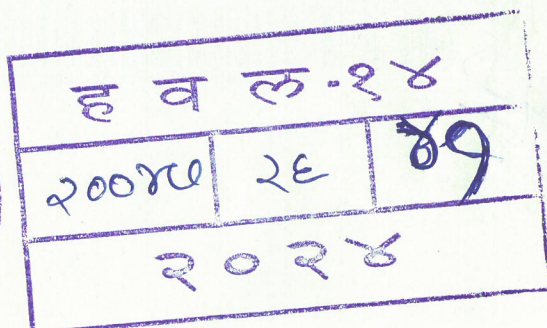 ह व ल-१४
२००४७ २६ ४१
२०२४